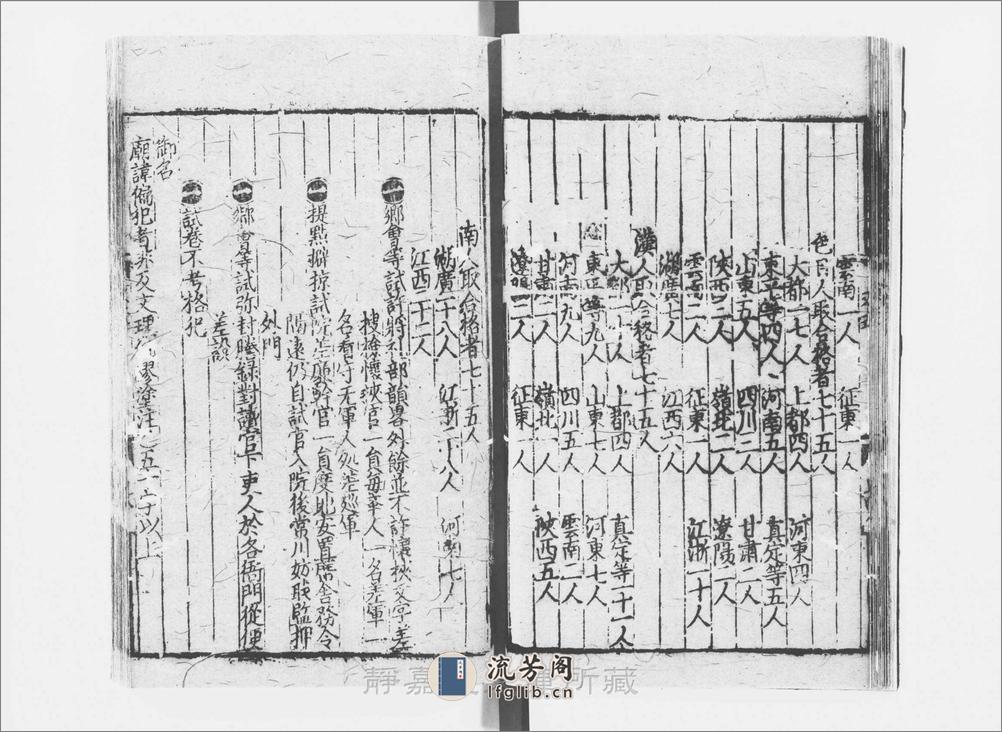 雲南一人 征東一人
色目人取合格者七十五人
大都一七人 上都四人 河東四人
東平等四人 河南五人 真定等五人
山東五人 四川二人 甘肅一人
陝西二人 嶺北二人 遼陽一人
雲南一人 征東一人 江浙一十人
湖廣七人 江西六人
漢人取合格者七十五人
大都一十人 上都四人 真定等一十一人
東平等九人 山東七人 河東七人
河南九人 四川五人 雲南二人
甘肅二人 嶺北一人 陝西五人
遼陽二人 征東一人
南人取合格者七十五人
湖廣一十八人 江浙二十八人 河南七人
江西二十二人
一鄉會等試許將禮部韻畧外餘並不許懷挾文字差
搜檢懷挾官一員每舉人一名差軍一
名看守无軍人处差巡軍
一提點擗掠試院差廉幹官一員度地安置席舍務令
隔遠仍自試官入院後常川妨职監押
外門
一鄉會等試弥封謄錄對讀官下吏人於各衙門從便
差設
一試卷不考格犯
御名
廟諱偏犯者非及文理 塗注 五十字以上
流芳阁
lfglib.cn
靜嘉 所藏